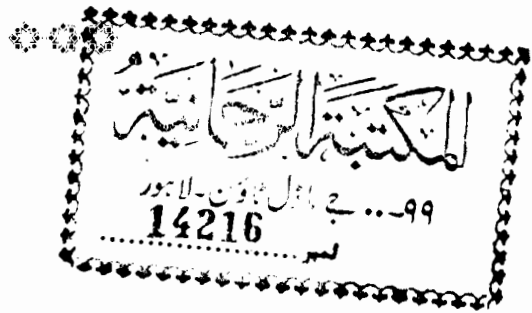 المكتبة الرحمانية
۹۹-.. جے ماڈل ٹاؤن - لاہور
14216
نمبر..............................